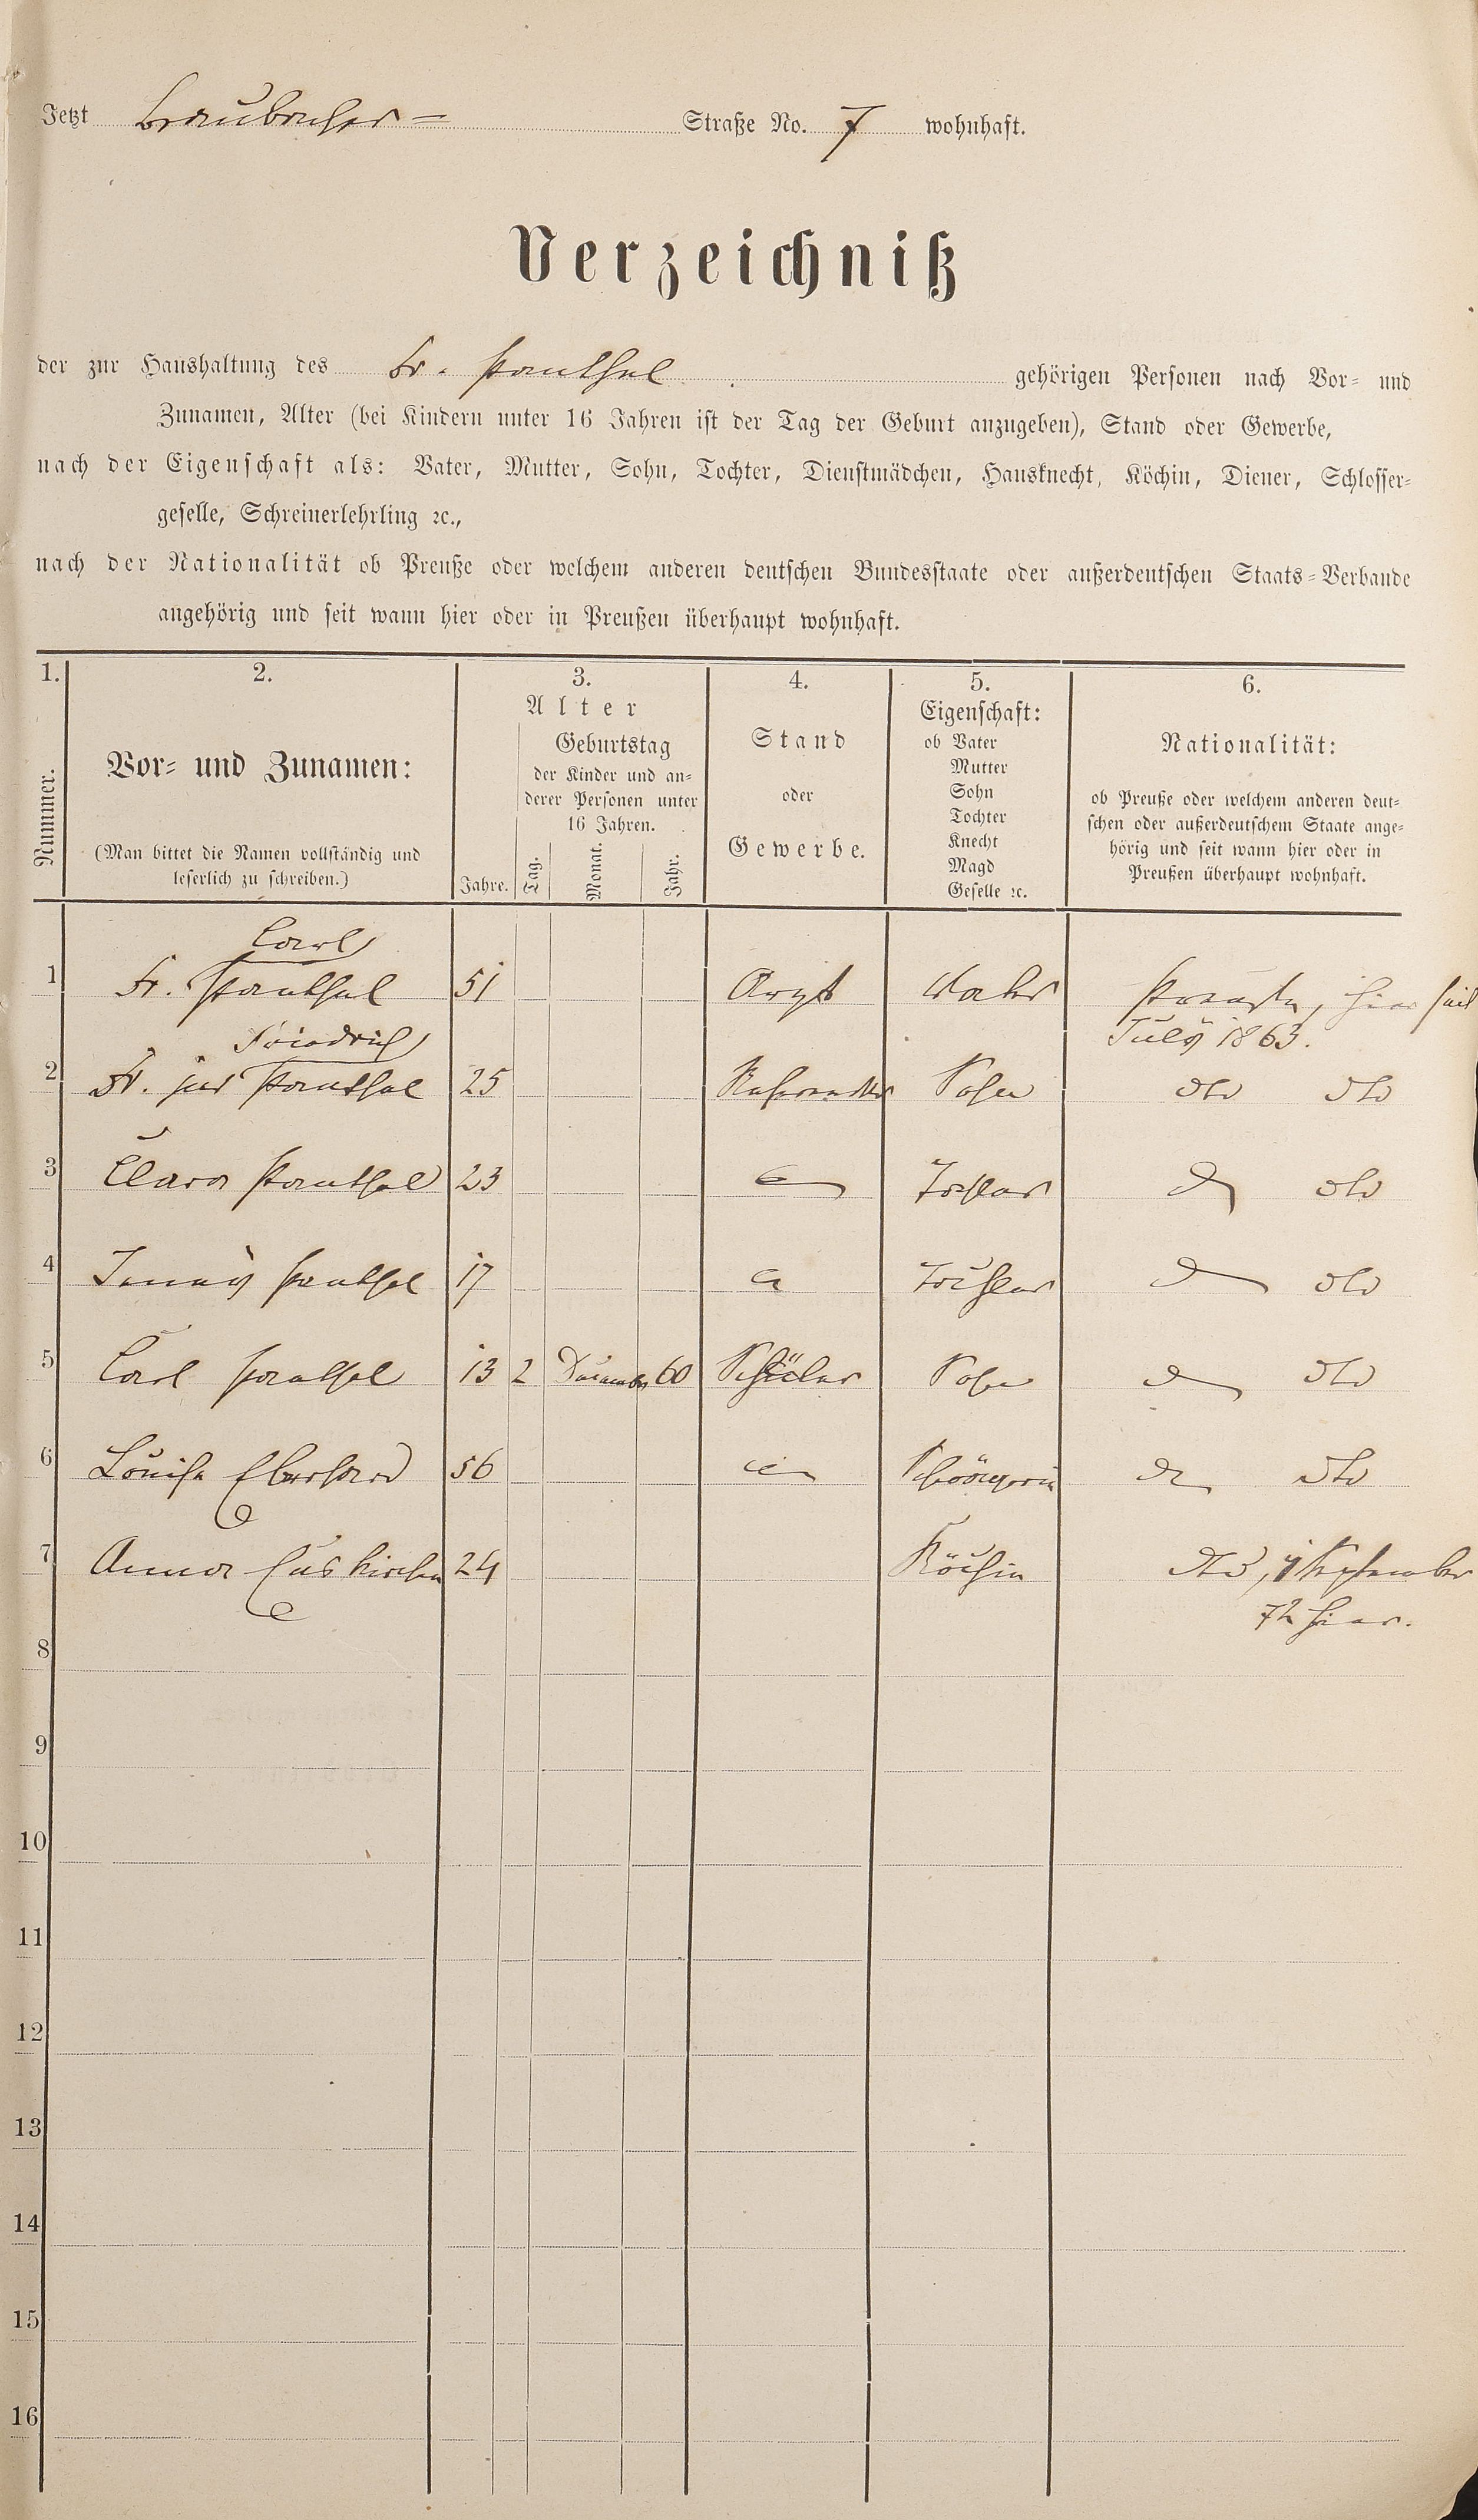 Jetzt Braubacher- Straße No. 7 wohnhaft.
Verzeichniß
der zur Haushaltung des Dr. Panthel gehörigen Personen nach Vor- und
Zunamen, Alter (bei Kindern unter 16 Jahren ist der Tag der Geburt anzugeben), Stand oder Gewerbe,
nach der Eigenschaft als: Vater, Mutter, Sohn, Tochter, Dienstmädchen, Hausknecht, Köchin, Diener, Schlosser-
geselle, Schreinerlehrling ꝛc.,
nach der Nationalität ob Preuße oder welchem anderen deutschen Bundesstaate oder außerdeutschen Staats-Verbande
angehörig und seit wann hier oder in Preußen überhaupt wohnhaft.
1. 2. 3. 4. 5. 6.
Nummer.
Vor- und Zunamen:
(Man bittet die Namen vollständig und
leserlich zu schreiben.)
Alter
Jahre.
Geburtstag
der Kinder und an-
derer Personen unter
16 Jahren.
Tag. Monat. Jahr.
Stand
oder
Gewerbe.
Eigenschaft:
ob Vater
Mutter
Sohn
Tochter
Knecht
Magd
Geselle ꝛc.
Nationalität:
ob Preuße oder welchem anderen deut-
schen oder außerdeutschem Staate ange-
hörig und seit wann hier oder in
Preußen überhaupt wohnhaft.
Carl
1 Dr. Panthel 51 Arzt Vater Preuße, hier seit
July 1863.
Friedrich
2 Dr. jur Panthel 25 Referendar Sohn dto dto
3 Clara Panthel 23 Tochter do dto
4 Jenny Panthel 17 Tochter do dto
5 Carl Panthel 13 2 December 60 Schüler Sohn do dto
6 Louise Eberhard 56 Schwägerin do dto
7 Anna Euskirchen 24 Köchin dto, September
72 hier.
8
9
10
11
12
13
14
15
16